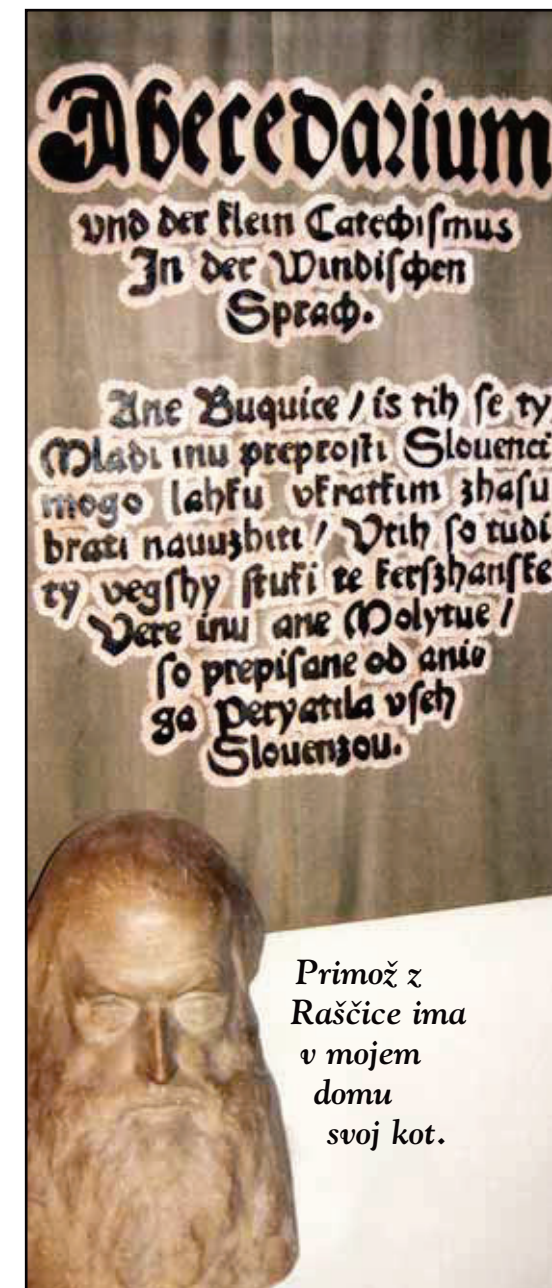 Abecedarium
vnd der klein Catechiſmus
In der Windiſchen
Sprach.
Ane Buquice / is tih ſe ty
Mladi inu preproſti Slouenci
mogo lahku vkratkim zhaſu
brati nauuzhiti / Vtih ſo tudi
ty vegſhy ſtuki te kerſzhanſke
Vere inu ane Molytue /
ſo prepiſane od anie
ga Peryatila vſeh
Slouenzou.
Primož z
Raščice ima
v mojem
domu
svoj kot.